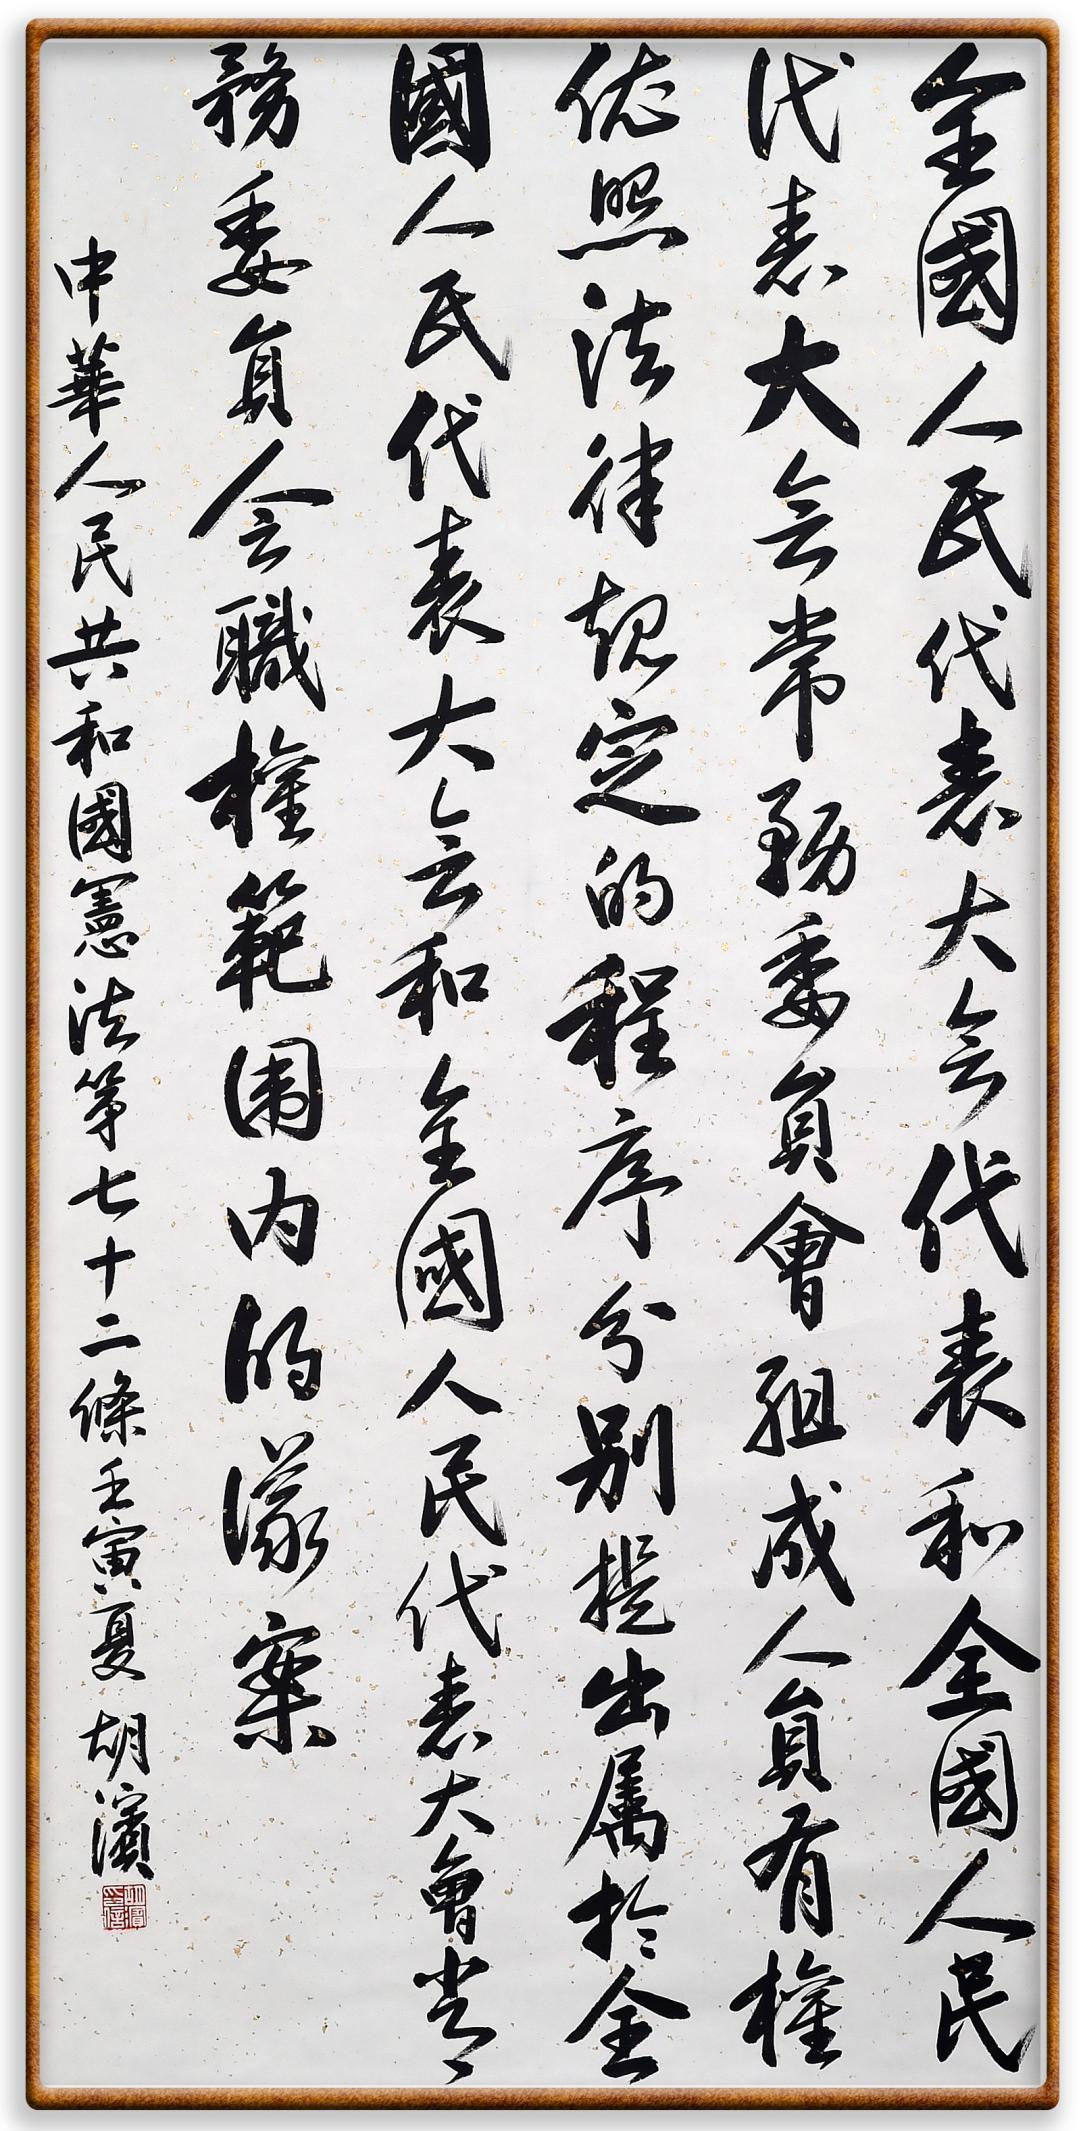 全國人民代表大会代表和全國人民
代表大会常務委員會組成人員有權
依照法律規定的程序分別提出属於全
國人民代表大会和全國人民代表大會常
務委員会職權範围内的議案
中華人民共和國憲法第七十二條壬寅夏 胡濱